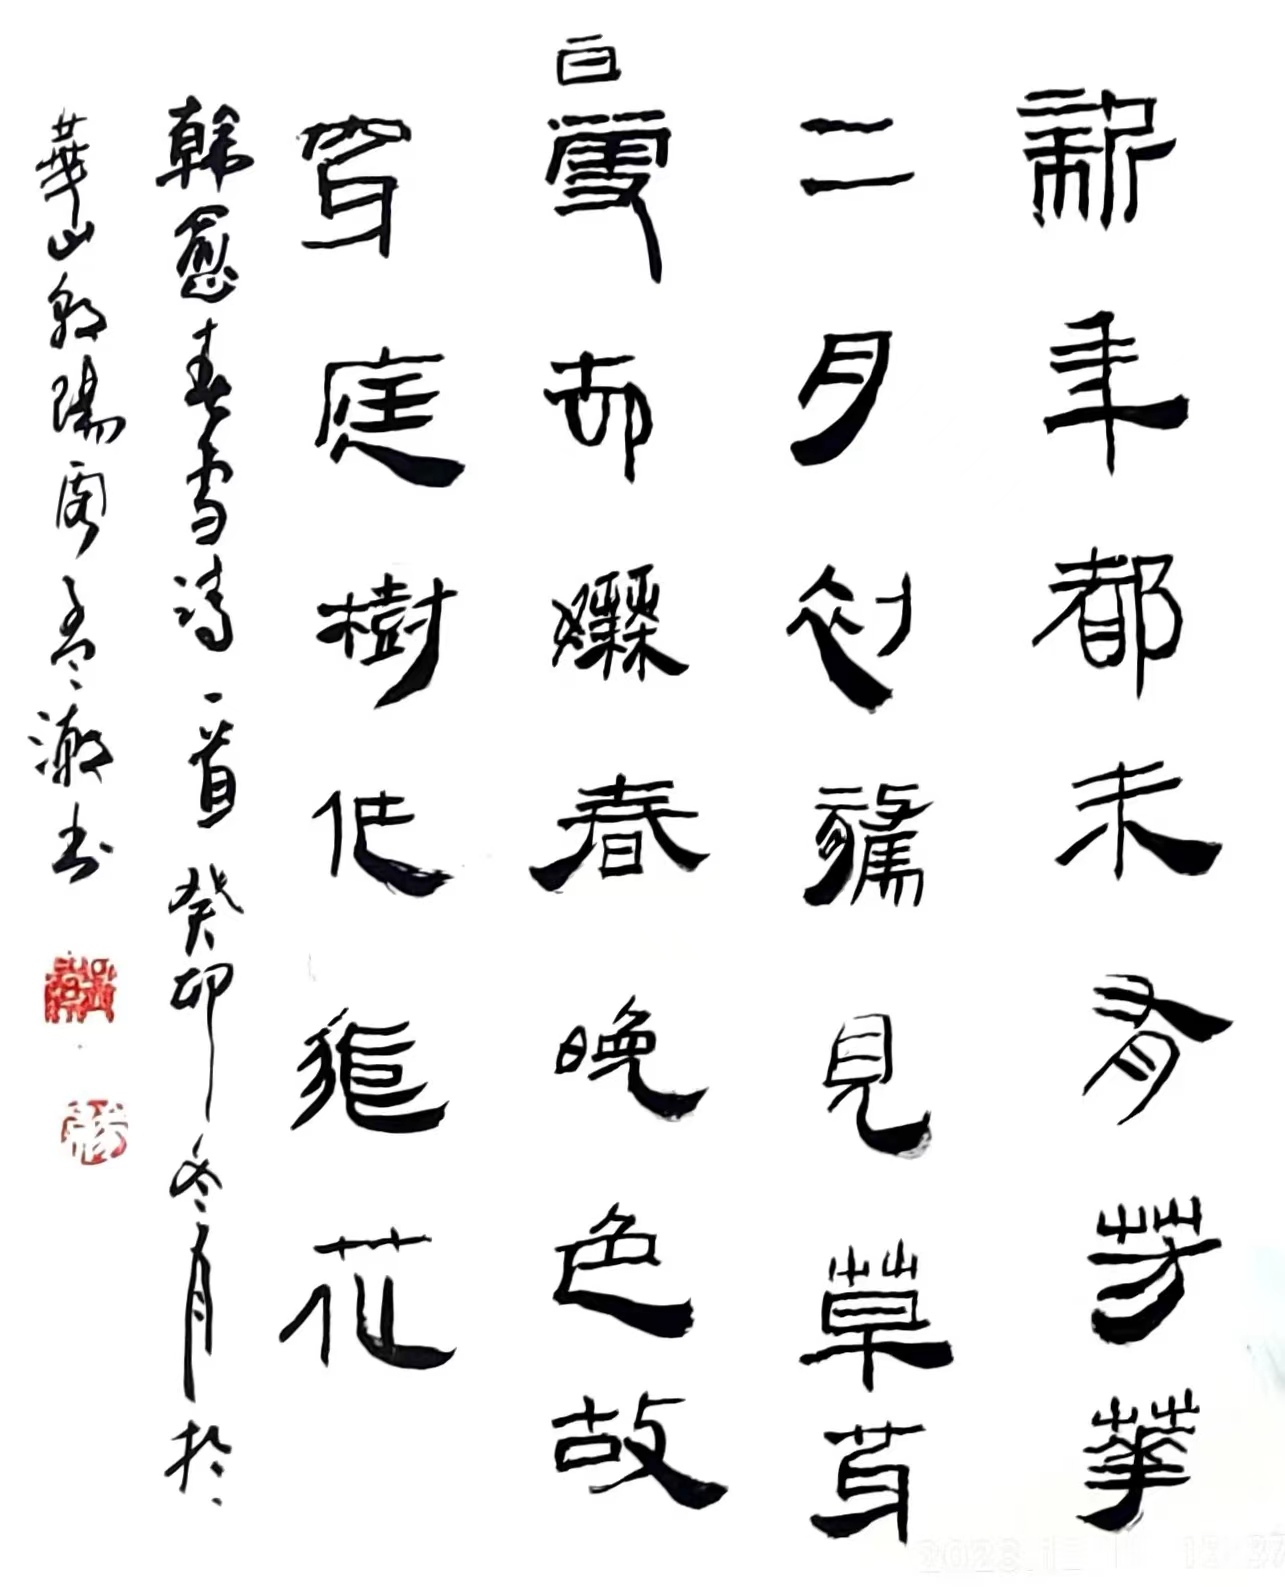 新年都未有芳華
二月初驚見草芽
白雪却嫌春晚色故
穿庭樹作飛花
韓愈春雪詩一首癸卯冬月於
華山朝陽閣孟冬潮書